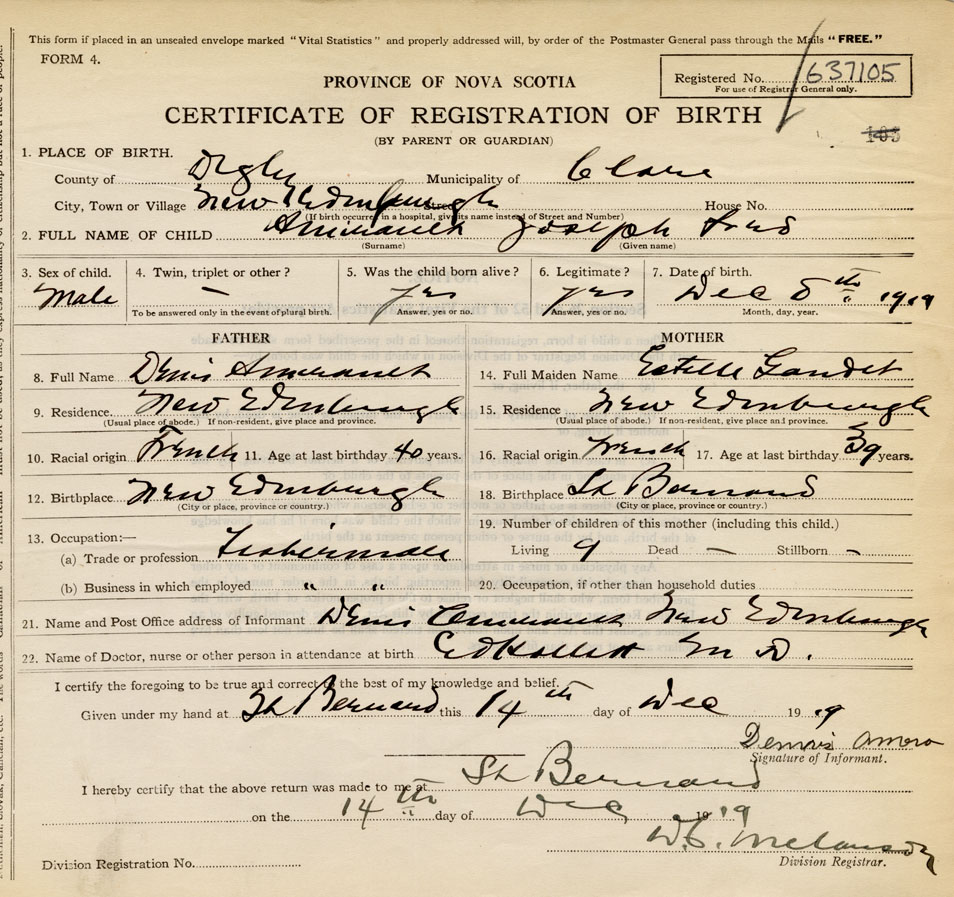 This form if placed in an unsealed envelope marked "Vital Statistics" and properly addressed will, by order of the Postmaster General pass through the Mails "FREE."
FORM 4.
Registered No. 637105
For use of Registrar General only.
PROVINCE OF NOVA SCOTIA
CERTIFICATE OF REGISTRATION OF BIRTH
(BY PARENT OR GUARDIAN)
105
1. PLACE OF BIRTH.
County of Digby Municipality of Clare
City, Town or Village New Edinburgh Street House No.
(If birth occurred in a hospital, give its name instead of Street and Number)
2. FULL NAME OF CHILD Amirault Joseph
(Surname) (Given name)
3. Sex of child. 4. Twin, triplet or other? 5. Was the child born alive? 6. Legitimate? 7. Date of birth.
Male — yes yes Dec 8th 1919
To be answered only in the event of plural birth. Answer, yes or no. Answer, yes or no. Month, day, year.
FATHER MOTHER
8. Full Name Denis Amirault 14. Full Maiden Name Estelle Gaudet
9. Residence. New Edinburgh 15. Residence New Edinburgh
(Usual place of abode.) If non-resident, give place and province. (Usual place of abode.) If non-resident, give place and province.
10. Racial origin French 11. Age at last birthday 40 years. 16. Racial origin French 17. Age at last birthday 39 years.
12. Birthplace New Edinburgh 18. Birthplace St Bernard
(City or place, province or country.) (City or place, province or country.)
13. Occupation:— 19. Number of children of this mother (including this child.)
(a) Trade or profession Fisherman Living 9 Dead — Stillborn –
(b) Business in which employed " " 20. Occupation, if other than household duties
21. Name and Post Office address of Informant Denis Amirault New Edinburgh
22. Name of Doctor, nurse or other person in attendance at birth M D.
I certify the foregoing to be true and correct to the best of my knowledge and belief.
Given under my hand at St Bernard this 14th day of Dec 1919
Dennis Amero
Signature of Informant.
I hereby certify that the above return was made to me at St Bernard
on the 14th day of Dec 1919
Melanson
Division Registration No. Division Registrar.